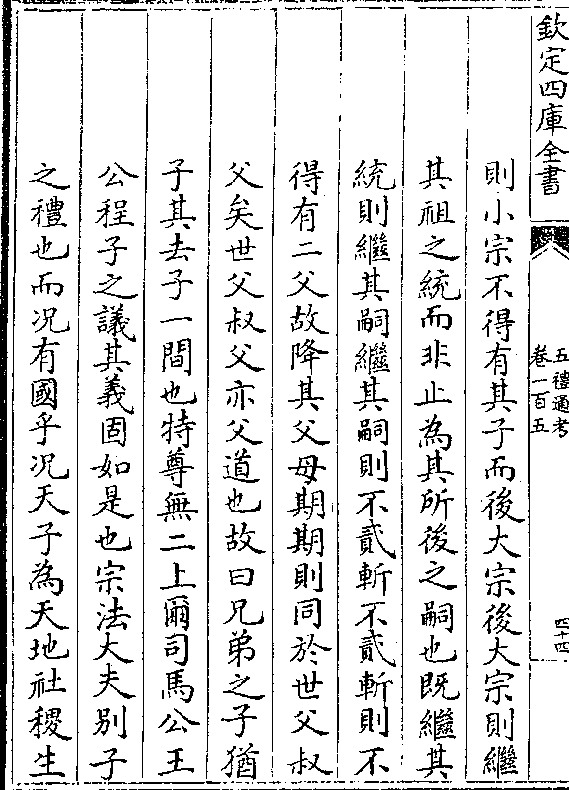 欽定四庫全書
五禮通考
卷一百五
四十四
則小宗不得有其子而後大宗後大宗則繼
其祖之統而非止為其所後之嗣也既繼其
統則繼其嗣繼其嗣則不貳斬不貳斬則不
得有二父故降其父母期期則同於世父叔
父矣世父叔父亦父道也故曰兄弟之子猶
子其去子一間也特尊無二上爾司馬公王
公程子之議其義固如是也宗法大夫別子
之禮也而况有國乎况天子為天地社稷生